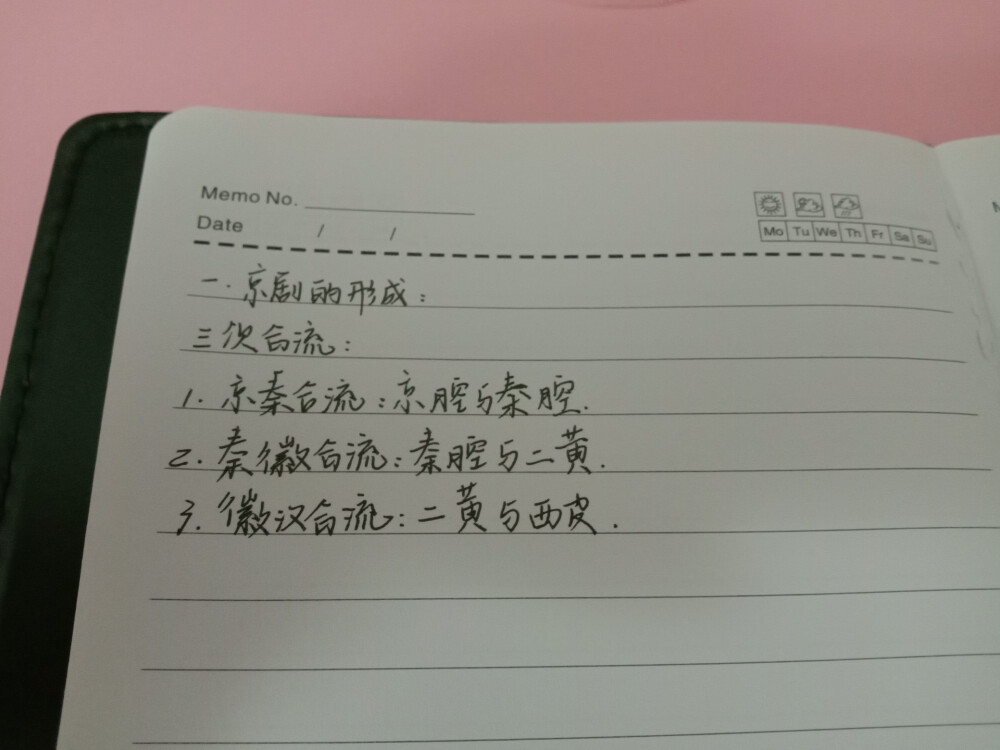 Memo No.
Date / /
Mo Tu We Th Fr Sa Su
一. 京剧的形成:
三次合流:
1. 京秦合流: 京腔与秦腔.
2. 秦徽合流: 秦腔与二黄.
3. 徽汉合流: 二黄与西皮.